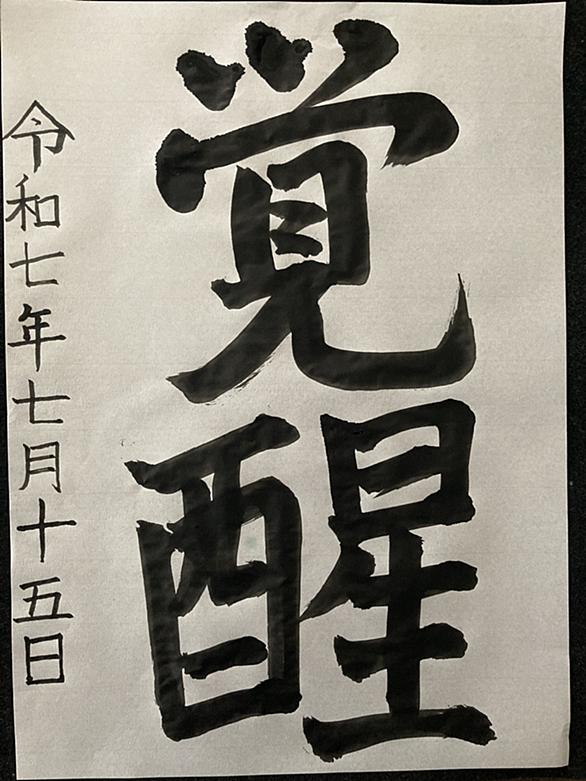 覚醒
令和七年七月十五日